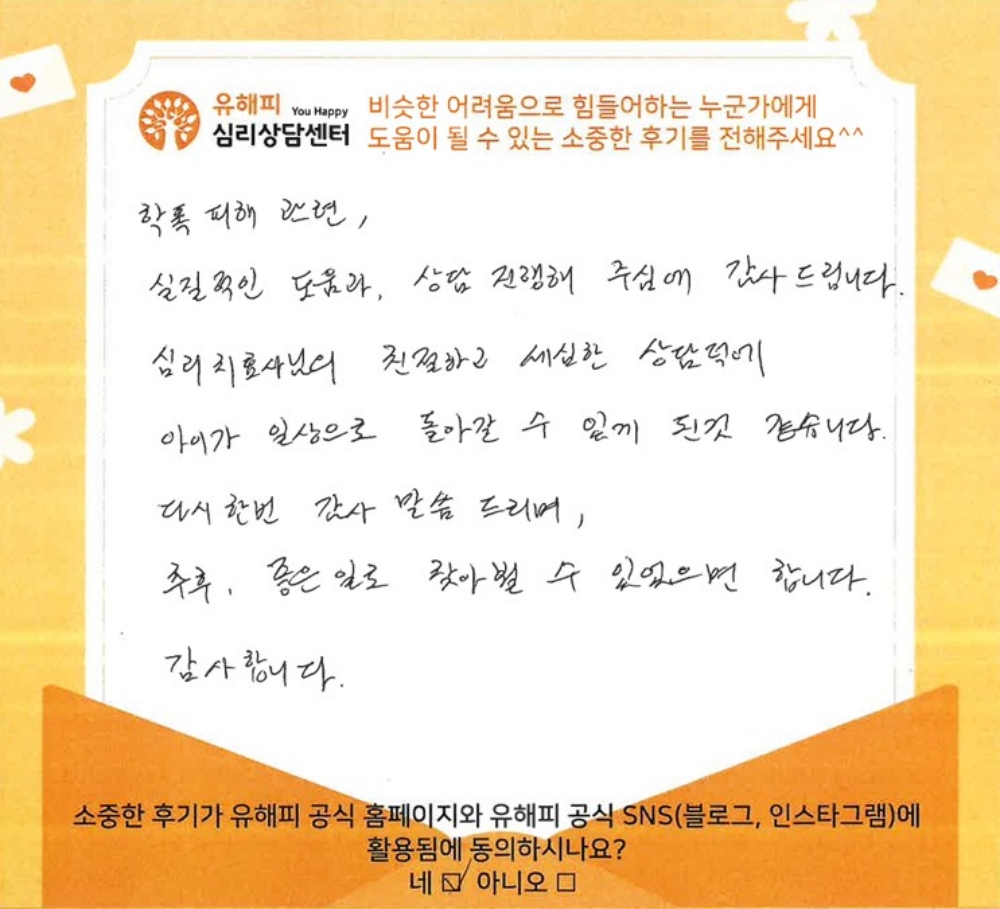 유해피 You Happy
심리상담센터
비슷한 어려움으로 힘들어하는 누군가에게
도움이 될 수 있는 소중한 후기를 전해주세요^^
학폭 피해 관련,
실질적인 도움과, 상담 진행해 주심에 감사드립니다.
심리치료사님의 친절하고 세심한 상담덕에
아이가 일상으로 돌아갈 수 있게 된것 같습니다.
다시한번 감사 말씀 드리며,
추후, 좋은일로 찾아뵐 수 있었으면 합니다.
감사합니다.
소중한 후기가 유해피 공식 홈페이지와 유해피 공식 SNS(블로그, 인스타그램)에
활용됨에 동의하시나요?
네 ☑ 아니오 □